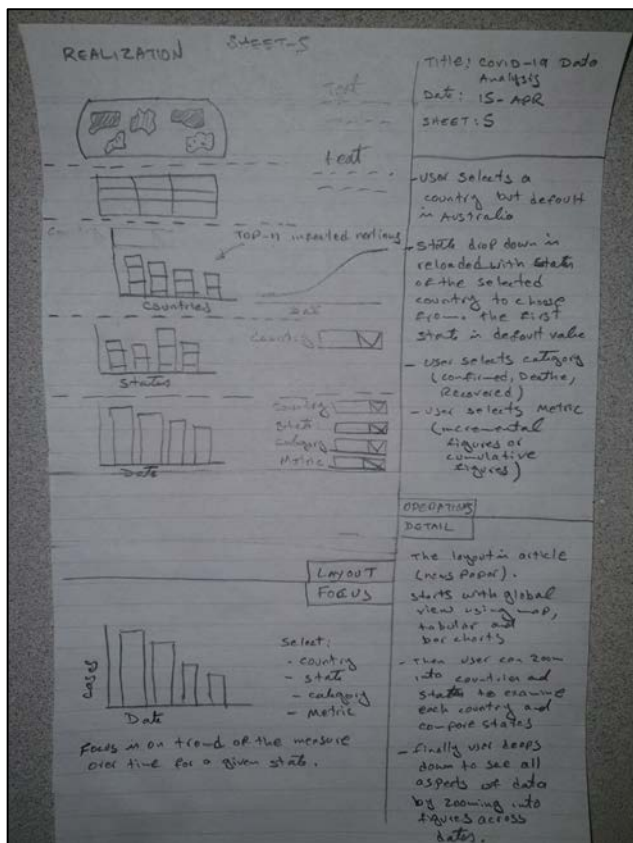 REALIZATION
SHEET-5
Text
text
TOP-n infected nations
Countries
Date
Country
States
Country
State
Category
Metric
Date
LAYOUT
FOCUS
Cases
Date
Select:
- country
- state
- category
- metric
Focus is on trend of the measure
over time for a given state.
Title: Covid-19 Data
Analysis
Date: 15-APR
SHEET: 5
- User selects a
country but default
is Australia
- State drop down is
reloaded with states
of the selected
country to choose
from. the first
state is default value
- user selects category
(confirmed, Deaths,
Recovered)
- User selects Metric
(incremental
figures or
cumulative
figures)
OPERATIONS
DETAIL
The layout is article
(news paper).
starts with global
view using map,
tabular and
bar charts
- Then user can zoom
into countries and
states to examine
each country and
compare states
- finally user drops
down to see all
aspects of data
by zooming into
figures across
dates.